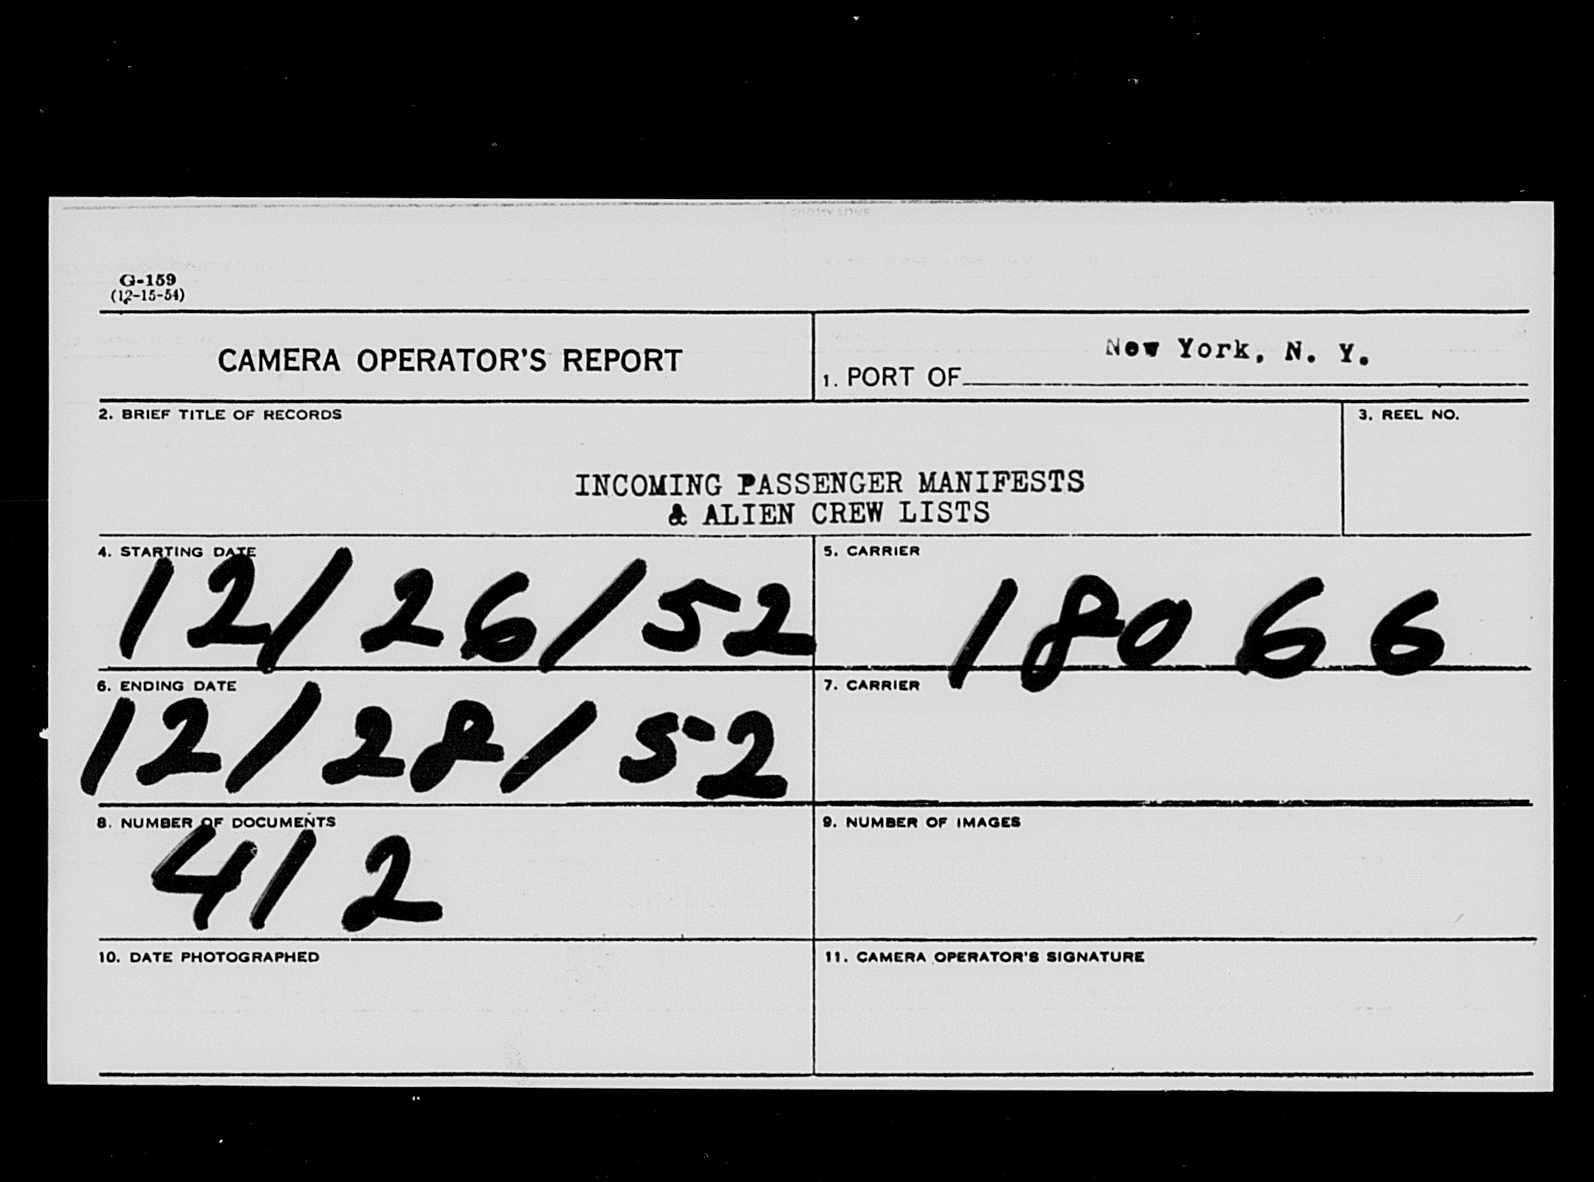 G-159
(12-15-54)
CAMERA OPERATOR'S REPORT
New York, N. Y.
1. PORT OF
2. BRIEF TITLE OF RECORDS
3. REEL NO.
INCOMING PASSENGER MANIFESTS
& ALIEN CREW LISTS
4. STARTING DATE
12/26/52
5. CARRIER
18066
6. ENDING DATE
12/28/52
7. CARRIER
8. NUMBER OF DOCUMENTS
412
9. NUMBER OF IMAGES
10. DATE PHOTOGRAPHED
11. CAMERA OPERATOR'S SIGNATURE